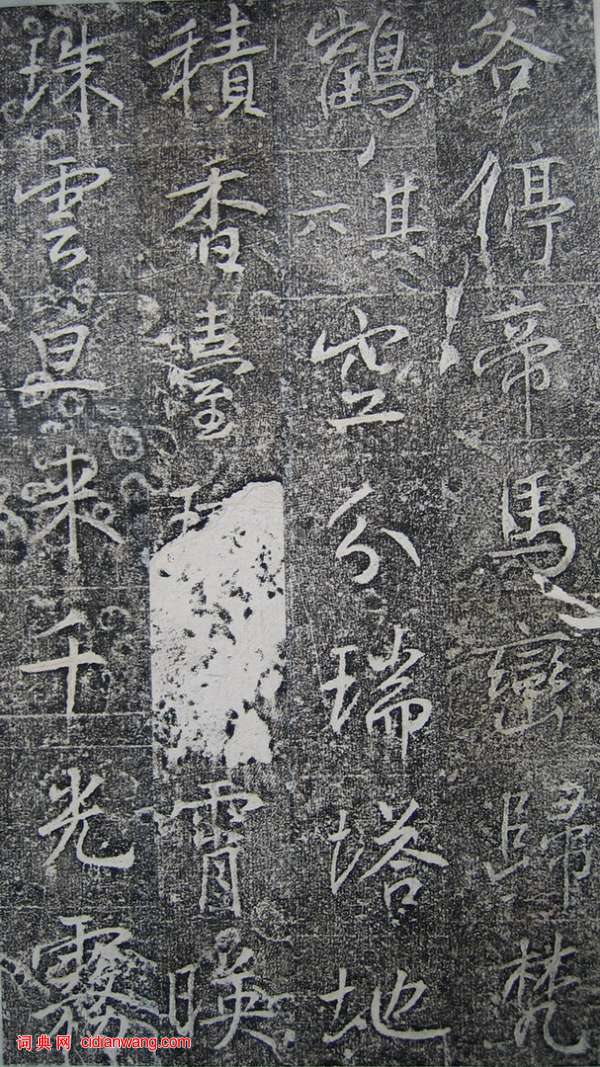 谷停啼馬巒歸梵
鶴其六空分瑞塔地
積香臺霄暎
珠雲具来千光霧
词典网 cidianwang.com